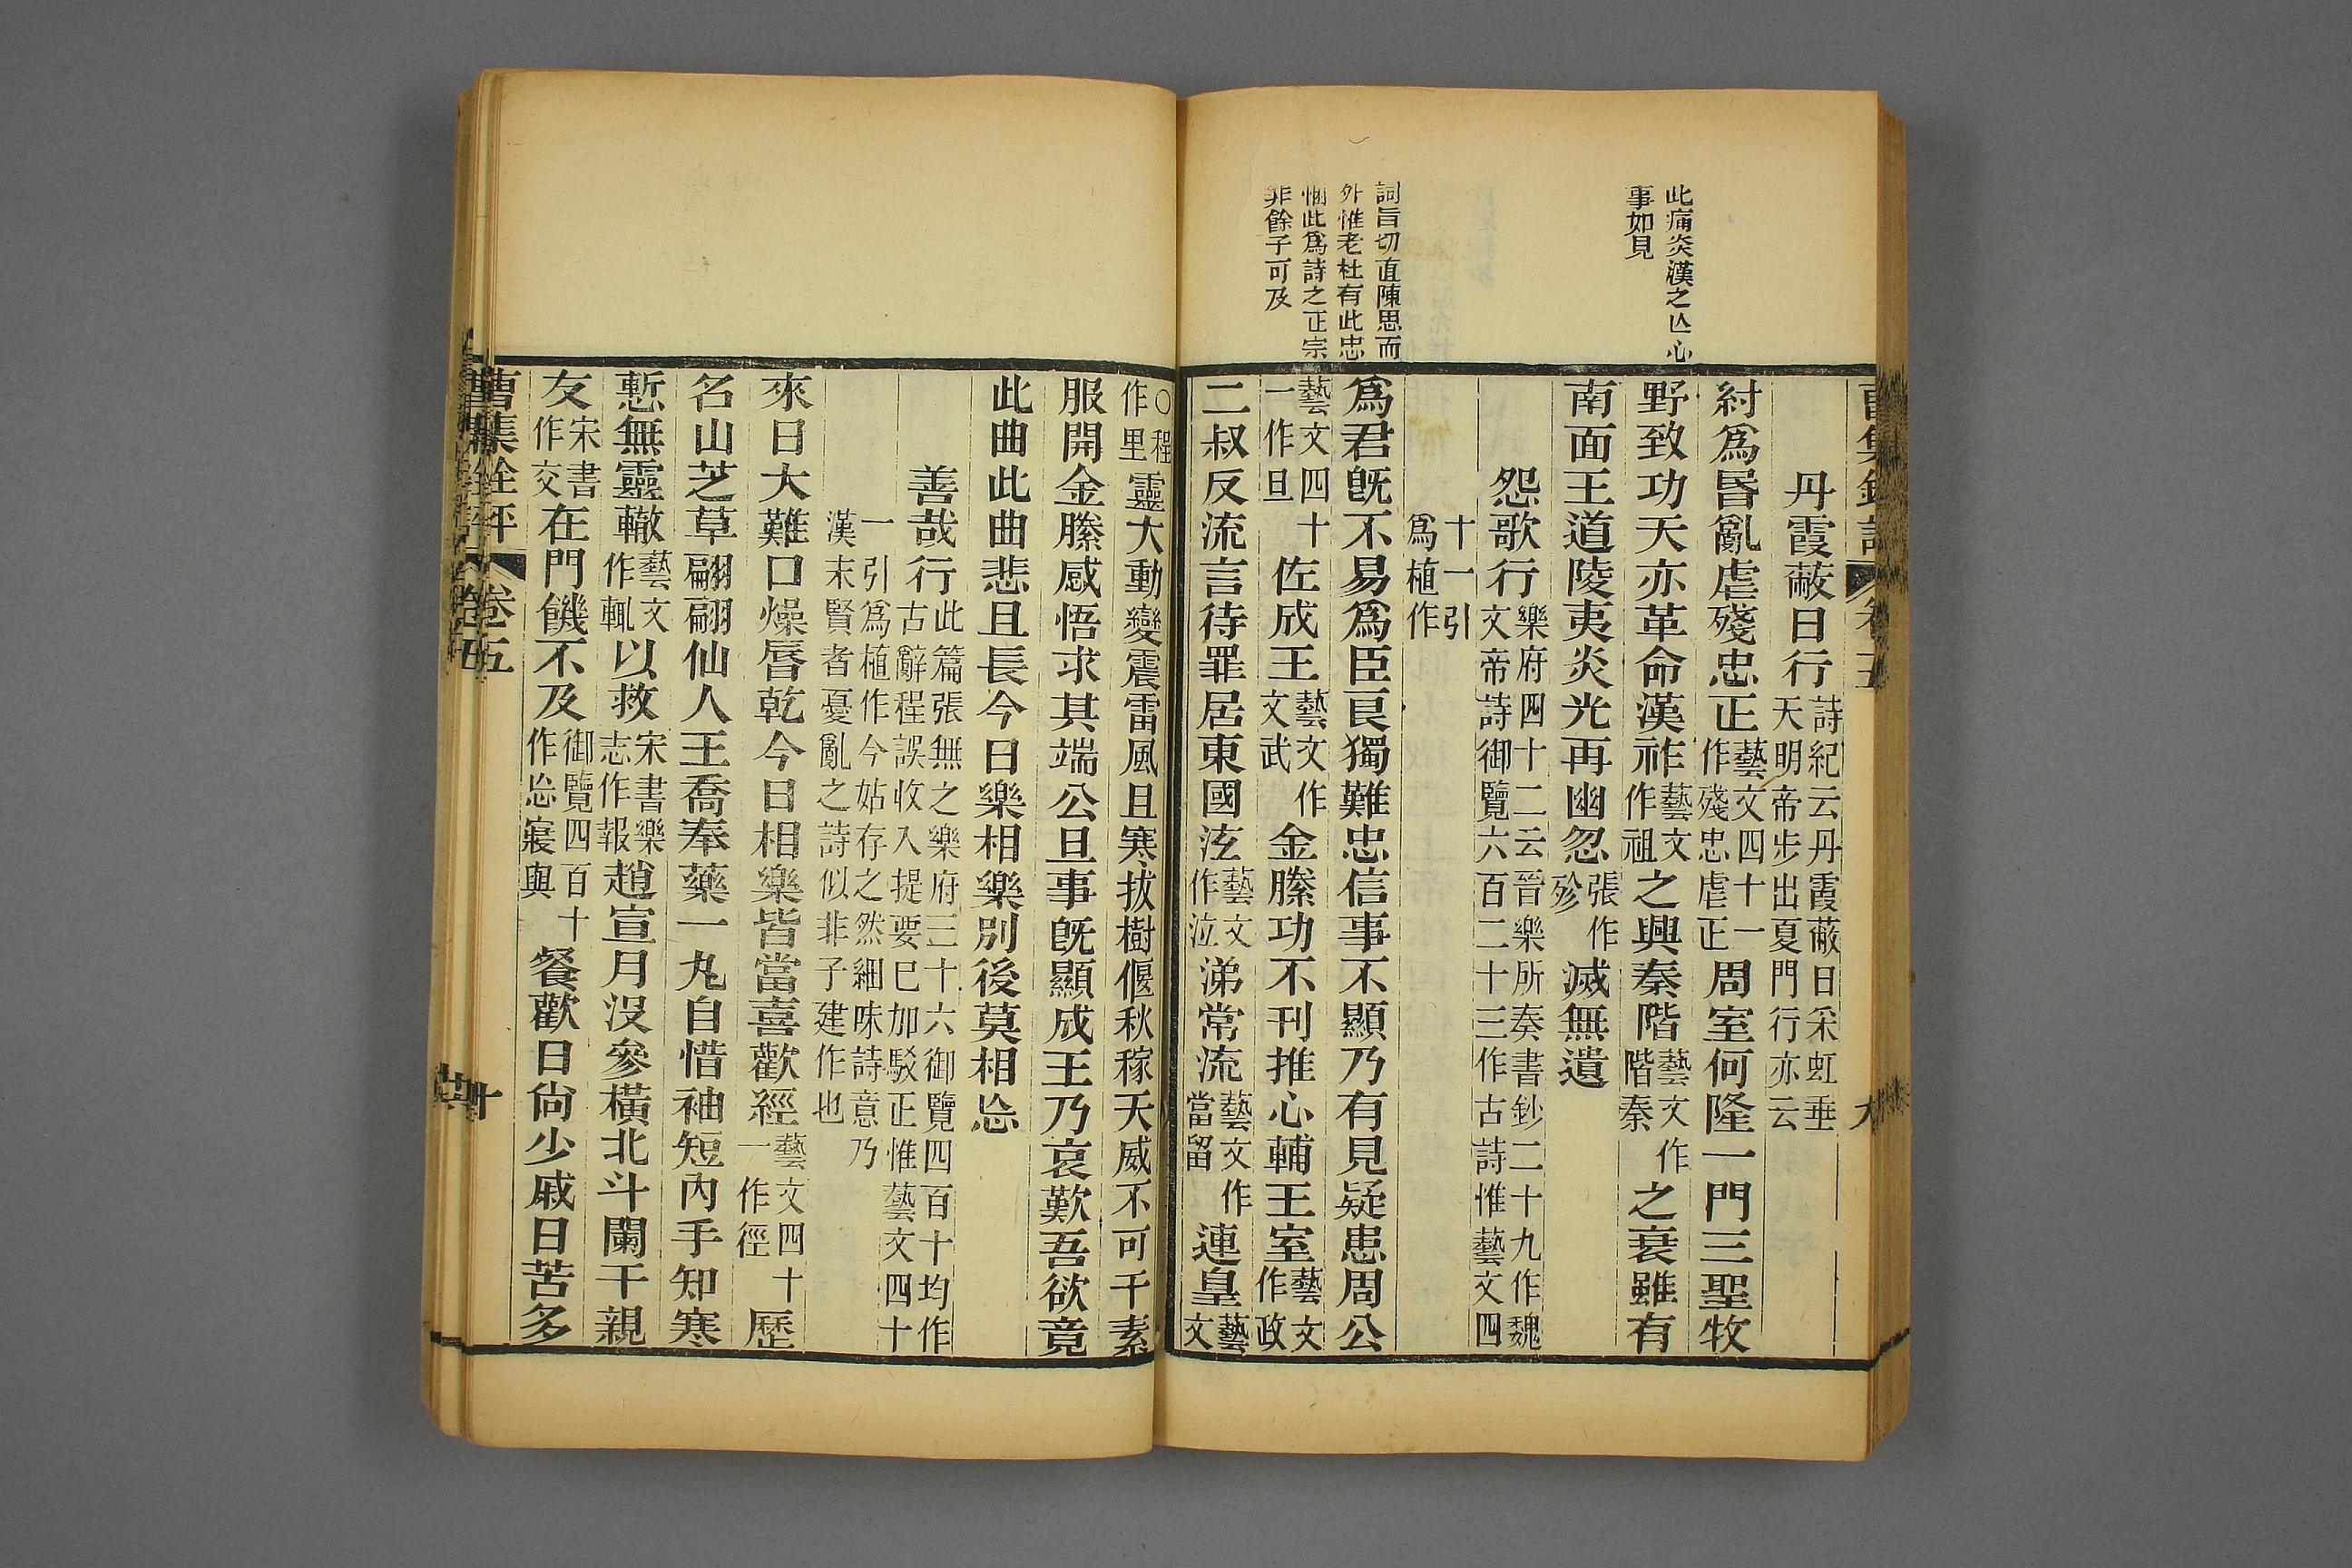 此痛炎漢之亾心
事如見
詞旨切直陳思而
外惟老杜有此忠
悃此爲詩之正宗
非餘子可及
丹霞蔽日行詩紀云丹霞蔽日采虹垂天明帝步出夏門行亦云
紂爲昏亂虐殘忠正藝文四十一作殘忠虐正周室何隆一門三聖牧
野致功天亦革命漢祚藝文作祖之興秦階藝文作階秦之衰雖有
南面王道陵夷炎光再幽忽張作殄滅無遺
怨歌行樂府四十二云晉樂所奏書鈔二十九作魏文帝詩御覽六百二十三作古詩惟藝文四
十一引爲植作
爲君旣不易爲臣良獨難忠信事不顯乃有見疑患周公
藝文四十一作旦佐成王藝文作文武金縢功不刊推心輔王室藝文作政
二叔反流言待罪居東國泫藝文作泣涕常流藝文作當留連皇藝文
○程作里靈大動變震雷風且寒拔樹偃秋稼天威不可干素
服開金縢感悟求其端公旦事旣顯成王乃哀歎吾欲竟
此曲此曲悲且長今日樂相樂別後莫相忘
善哉行此篇張無之樂府三十六御覽四百十均作古辭程誤收入提要已加駁正惟藝文四十
一引爲植作今姑存之然細味詩意乃漢末賢者憂亂之詩似非子建作也
來日大難口燥脣乾今日相樂皆當喜歡經藝文四十一作徑歷
名山芝草翩翩仙人王喬奉藥一丸自惜袖短內手知寒
慙無靈轍藝文作輒以救宋書樂志作報趙宣月沒參橫北斗闌干親
友宋書作交在門饑不及御覽四百十作忘寢與餐歡日尙少戚日苦多
曹集銓評 卷五 十